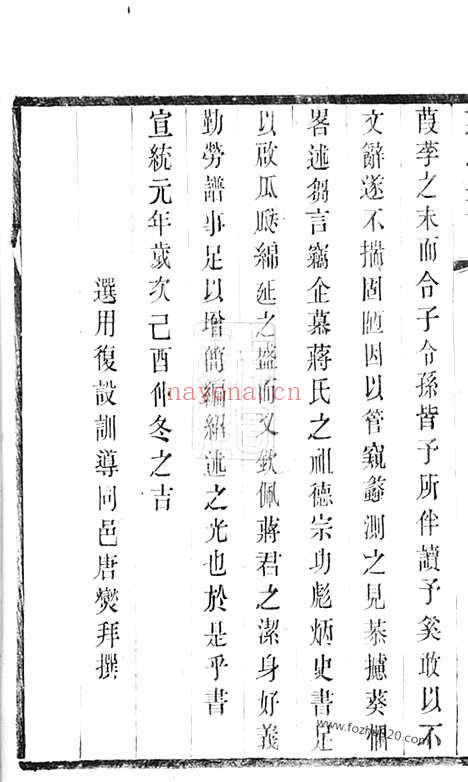 葭莩之末而令子令孫皆予所伴讀予奚敢以不
文辭遂不揣固陋因以管窺蠡測之見恭攄葵悃
畧述芻言竊企慕蔣氏之祖德宗功彪炳史書足
以啟瓜瓞綿延之盛而又欽佩蔣君之潔身好義
勤勞譜事足以增簡編紹述之光也於是乎書
宣統元年歲次己酉仲冬之吉
選用復設訓導同邑唐爕拜撰
nayona.cn
www.fozhu920.com